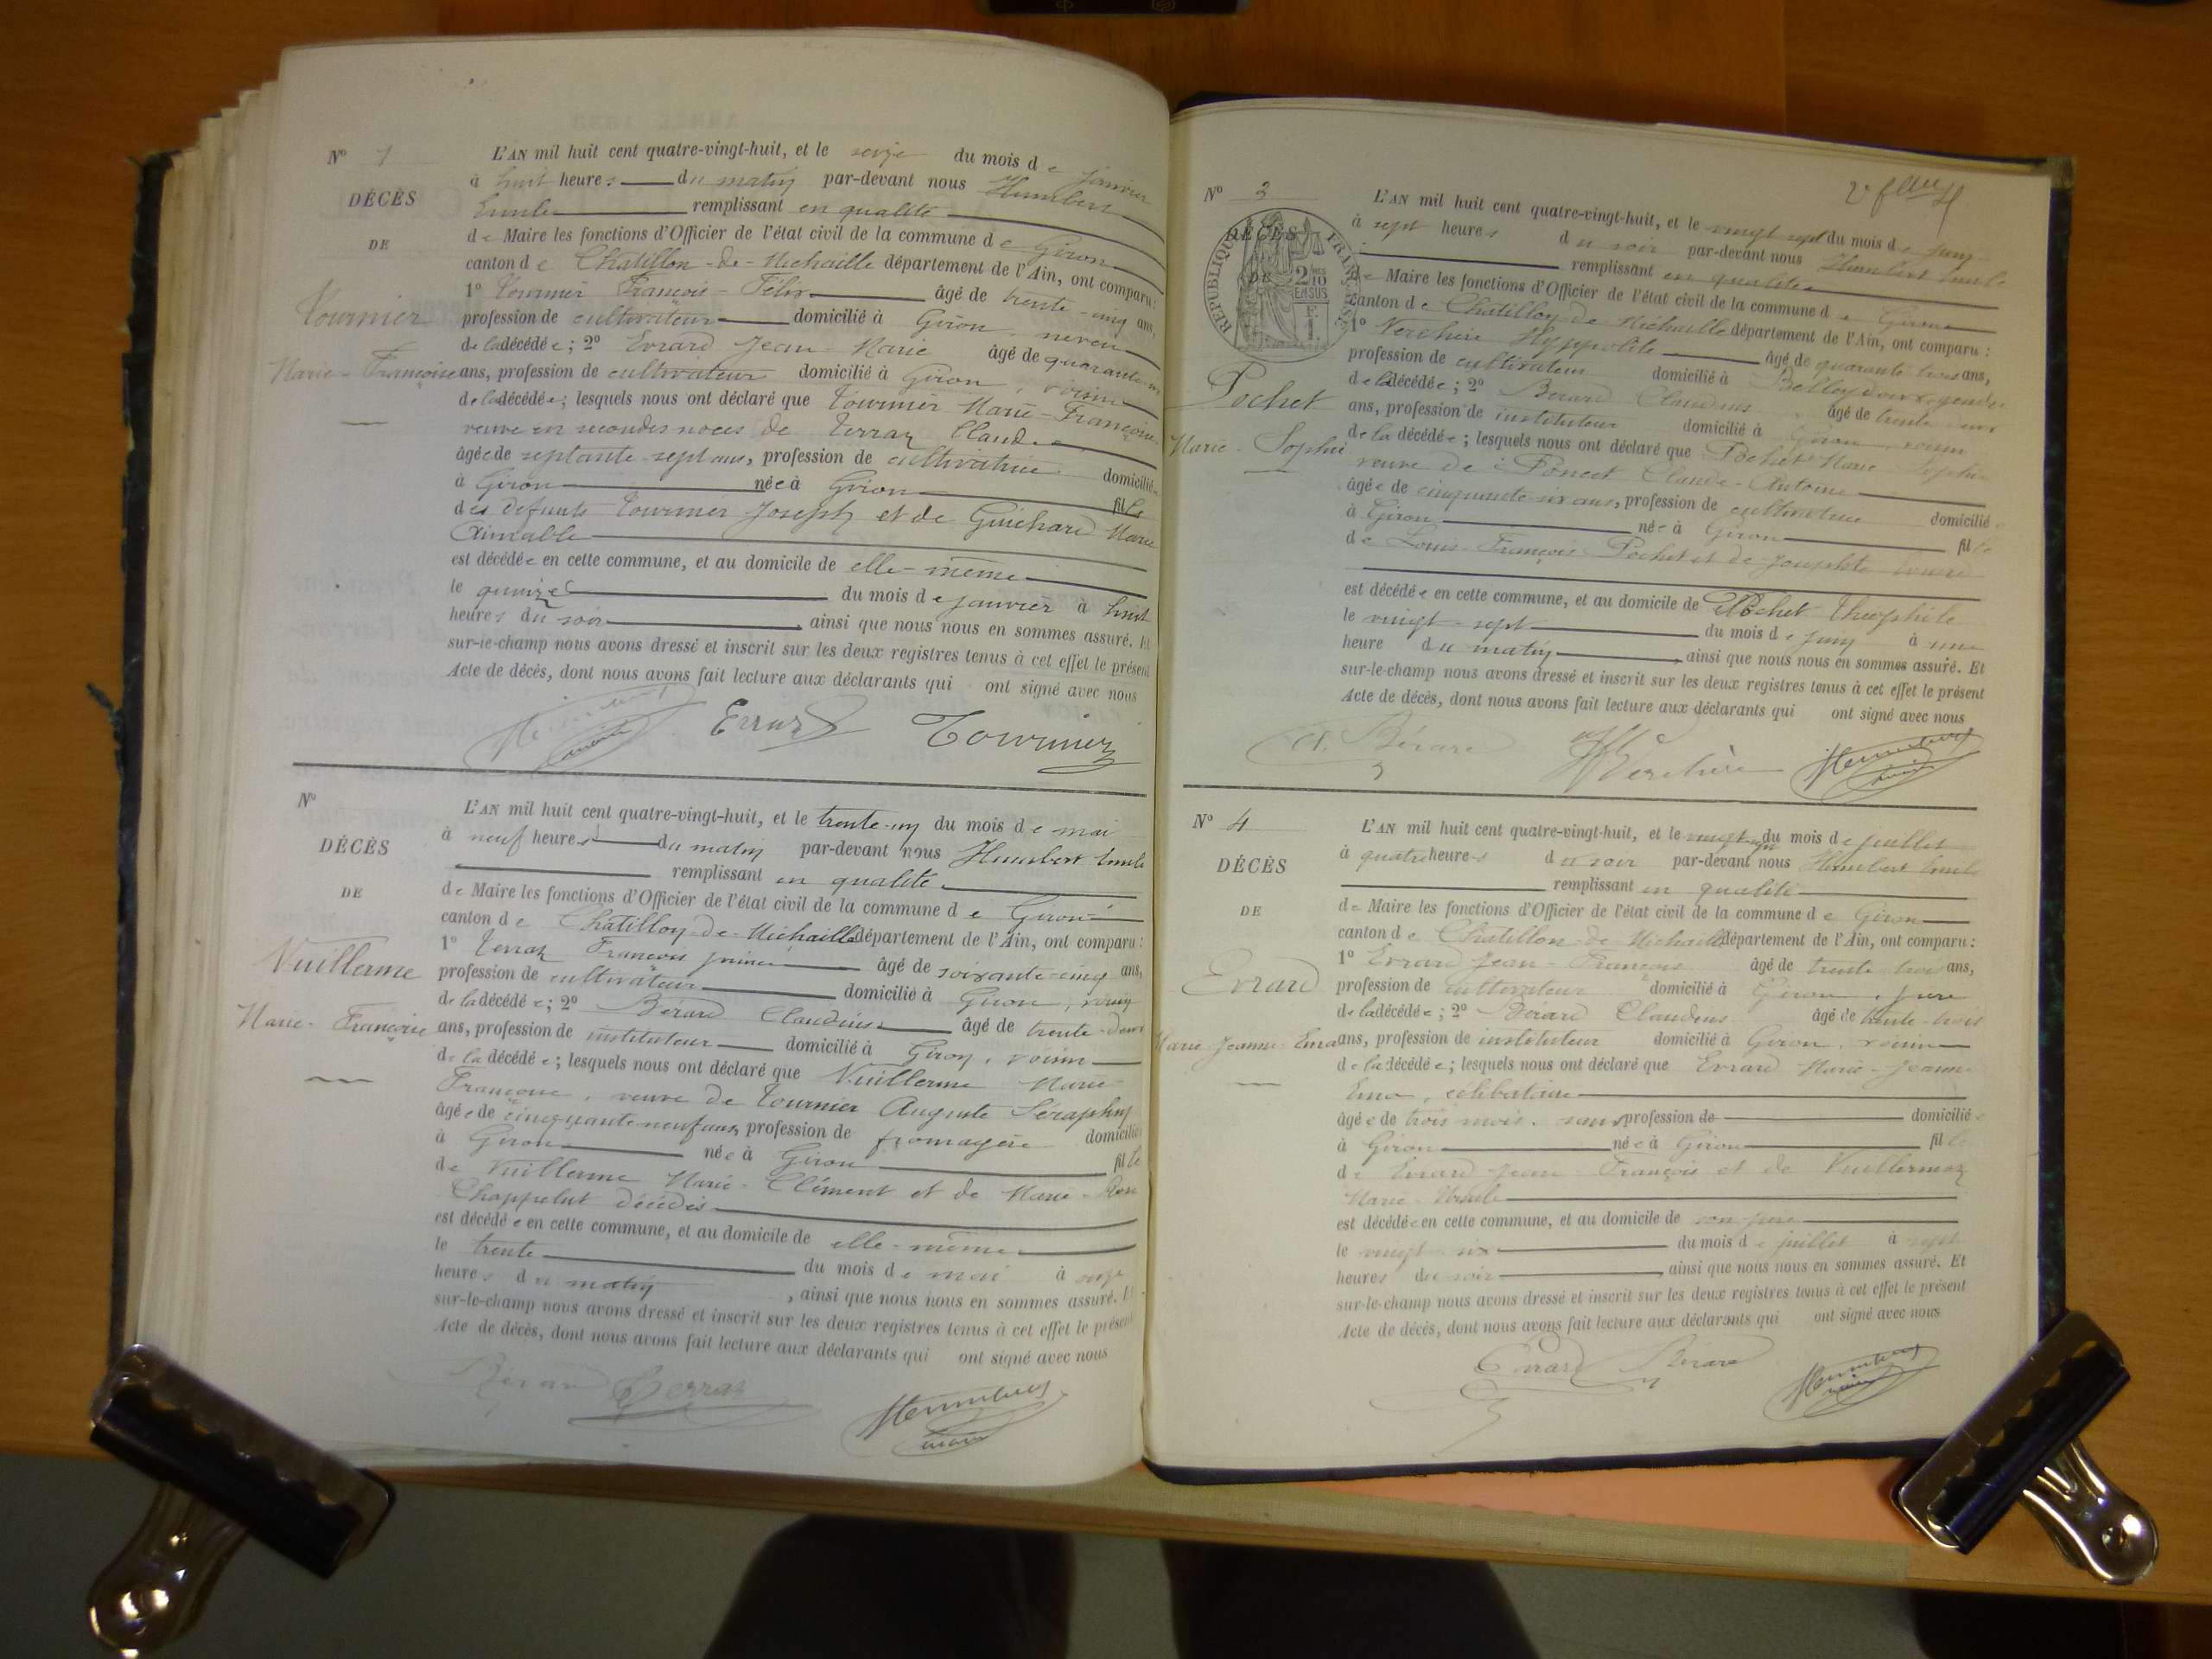 N° 1
DÉCÈS
DE
Tournier
Marie-Françoise
L'AN mil huit cent quatre-vingt-huit, et le seize du mois de janvier
à huit heures du matin par-devant nous Humbert
Emile remplissant en qualité
de Maire les fonctions d'Officier de l'état civil de la commune de Giron
canton de Chatillon-de-Michaille département de l'Ain, ont comparu :
1° Tournier François-Félix âgé de trente-cinq ans,
profession de cultivateur domicilié à Giron, neveu
de la décédée ; 2° Evrard Jean-Marie âgé de quarante-
ans, profession de cultivateur domicilié à Giron, voisin
de la décédée ; lesquels nous ont déclaré que Tournier Marie-Françoise
veuve en secondes noces de Terraz Claude
âgée de septante-sept ans, profession de cultivatrice domiciliée
à Giron née à Giron fille
des défunts Tournier Joseph et de Guichard Marie
Aimable
est décédée en cette commune, et au domicile de elle-même
le quinze du mois de janvier à huit
heures du soir ainsi que nous nous en sommes assuré. Et
sur-le-champ nous avons dressé et inscrit sur les deux registres tenus à cet effet le présent
Acte de décès, dont nous avons fait lecture aux déclarants qui ont signé avec nous
Evrard Tournier
N°
DÉCÈS
DE
Vuillerme
Marie-Françoise
L'AN mil huit cent quatre-vingt-huit, et le trente-un du mois de mai
à neuf heures du matin par-devant nous Humbert Emile
remplissant en qualité
de Maire les fonctions d'Officier de l'état civil de la commune de Giron
canton de Chatillon-de-Michaille département de l'Ain, ont comparu :
1° Terraz François âgé de soixante-cinq ans,
profession de cultivateur domicilié à Giron, voisin
de la décédée ; 2° Bérard Claudius âgé de trente-deux
ans, profession de instituteur domicilié à Giron, voisin
de la décédée ; lesquels nous ont déclaré que Vuillerme Marie-
Françoise, veuve de Tournier Auguste Séraphin
âgée de cinquante-neuf ans, profession de fromagère domiciliée
à Giron née à Giron fille
de Vuillerme Marie-Clément et de Marie-Rose
Chappelut décédés
est décédée en cette commune, et au domicile de elle-même
le trente du mois de mai à onze
heures du matin, ainsi que nous nous en sommes assuré. Et
sur-le-champ nous avons dressé et inscrit sur les deux registres tenus à cet effet le présent
Acte de décès, dont nous avons fait lecture aux déclarants qui ont signé avec nous
Bérard Terraz Humbert
maire
2e fllet
N° 3
RÉPUBLIQUE FRANÇAISE
2/10 EN SUS
DÉCÈS
DE
Pochet
Marie-Sophie
L'AN mil huit cent quatre-vingt-huit, et le vingt sept du mois de juin
à sept heures du soir par-devant nous Humbert Emile
remplissant en qualité
de Maire les fonctions d'Officier de l'état civil de la commune de Giron
canton de Chatillon-de-Michaille département de l'Ain, ont comparu :
1° Verchère Hyppolite âgé de quarante trois ans,
profession de cultivateur domicilié à Belleydoux, gendre
de la décédée ; 2° Bérard Claudius âgé de trente deux
ans, profession de instituteur domicilié à Giron, voisin
de la décédée ; lesquels nous ont déclaré que Pochet Marie Sophie
veuve de Poncet Claude-Antoine
âgée de cinquante six ans, profession de cultivatrice domiciliée
à Giron née à Giron fille
de Louis-François Pochet et de Josephte
est décédée en cette commune, et au domicile de Pochet Théophile
le vingt-sept du mois de juin à une
heure du matin, ainsi que nous nous en sommes assuré. Et
sur-le-champ nous avons dressé et inscrit sur les deux registres tenus à cet effet le présent
Acte de décès, dont nous avons fait lecture aux déclarants qui ont signé avec nous
Cl. Bérard Verchère Humbert
maire
N° 4
DÉCÈS
DE
Evrard
Marie-Jeanne-Ema
L'AN mil huit cent quatre-vingt-huit, et le du mois de juillet
à quatre heures du soir par-devant nous Humbert Emile
remplissant en qualité
de Maire les fonctions d'Officier de l'état civil de la commune de Giron
canton de Chatillon-de-Michaille département de l'Ain, ont comparu :
1° Evrard Jean-François âgé de trente trois ans,
profession de cultivateur domicilié à Giron, père
de la décédée ; 2° Bérard Claudius âgé de trente-trois
ans, profession de instituteur domicilié à Giron, voisin
de la décédée ; lesquels nous ont déclaré que Evrard Marie-Jeanne
Ema, célibataire
âgée de trois mois, sans profession de domiciliée
à Giron née à Giron fille
de Evrard Jean François et de Vuillermoz
Marie-Ursule
est décédée en cette commune, et au domicile de son père
le vingt-six du mois de juillet à sept
heures du soir, ainsi que nous nous en sommes assuré. Et
sur-le-champ nous avons dressé et inscrit sur les deux registres tenus à cet effet le présent
Acte de décès, dont nous avons fait lecture aux déclarants qui ont signé avec nous
Evrard Bérard Humbert
maire